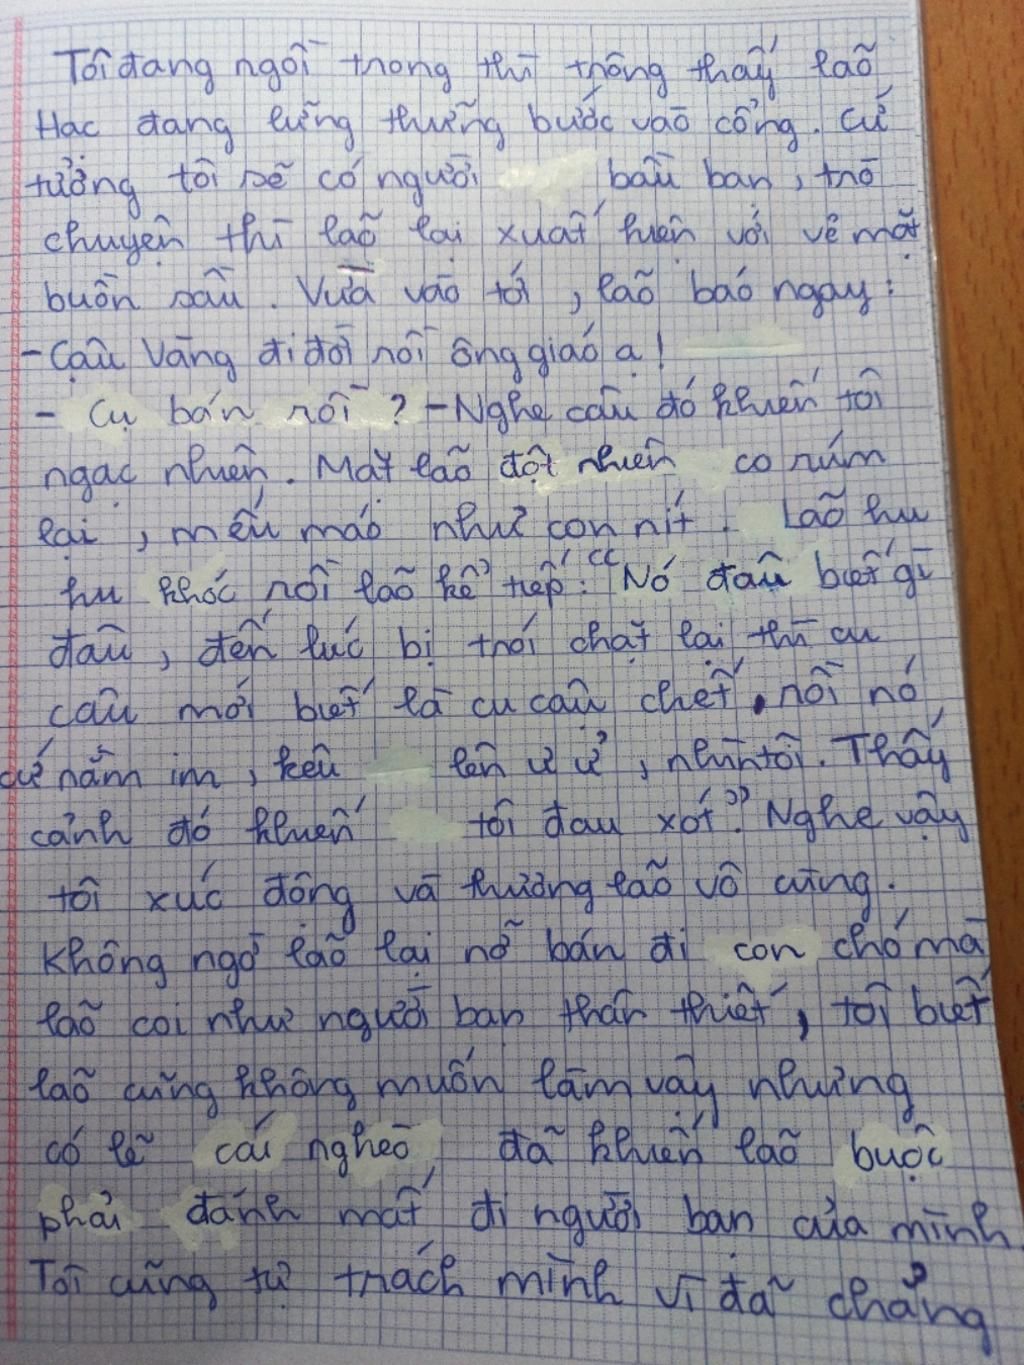 Tôi đang ngồi trong thì trông thấy lão
Hạc đang lững thững bước vào cổng. Cứ
tưởng tôi sẽ có người bầu bạn, trò
chuyện thì lão lại xuất hiện với vẻ mặt
buồn sầu. Vừa vào tới, lão báo ngay:
- Cậu Vàng đi đời rồi ông giáo ạ!
- Cụ bán rồi? - Nghe câu đó khiến tôi
ngạc nhiên. Mặt lão đột nhiên co rúm
lại, mếu máo như con nít. Lão hu
hu khóc rồi lão kể tiếp: "Nó đâu biết gì
đâu, đến lúc bị trói chặt lại thì cu
cậu mới biết là cu cậu chết, rồi nó
cứ nằm im, kêu lên ư ử, nhìn tôi. Thấy
cảnh đó khiến tôi đau xót". Nghe vậy
tôi xúc động và thương lão vô cùng.
Không ngờ lão lại nỡ bán đi con chó mà
lão coi như người bạn thân thiết, tôi biết
lão cũng không muốn làm vậy nhưng
có lẽ cái nghèo đã khiến lão buộc
phải đánh mất đi người bạn của mình
Tôi cũng tự trách mình vì đã chẳng